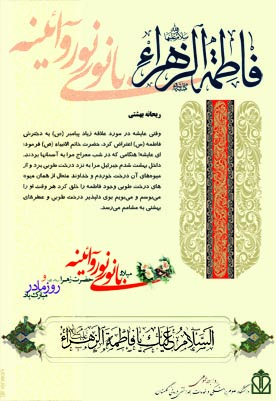 بانوی نور و آئینه
فاطمة الزهراء
سلام الله علیها
ریحانه بهشتی
وقتی عایشه در مورد علاقه زیاد پیامبر (ص) به دخترش
فاطمه (س) اعتراض کرد، حضرت خاتم الانبیاء (ص) فرمود:
ای عایشه! هنگامی که در شب معراج مرا به آسمانها بردند،
داخل بهشت شدم جبرئیل مرا به نزد درخت طوبی برد و از
میوه‌های آن درخت خوردم و خداوند متعال از همان میوه
های درخت طوبی وجود فاطمه را خلق کرد هر وقت او را
می‌بوسم و می‌بویم بوی دلپذیر درخت طوبی و عطرهای
بهشتی به مشامم می‌رسد.
میلاد بانوی نور و آئینه
حضرت زهرا
و
روز مادر
مبارک باد
السلام علیک یا فاطمة الزهراء